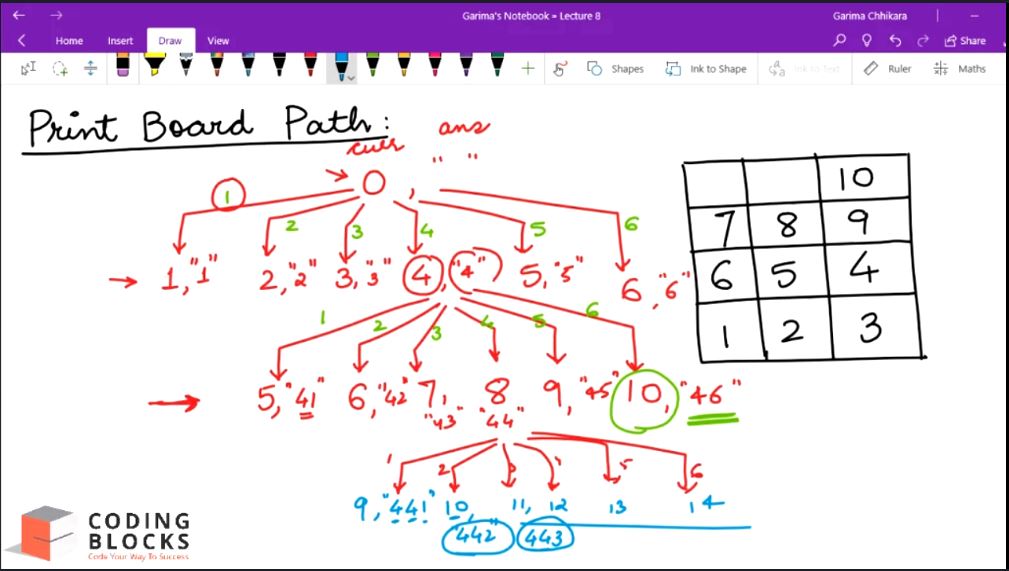 Garima's Notebook » Lecture 8
Garima Chhikara
Home Insert Draw View
Share
Shapes Ink to Shape Ink to Text Ruler Maths
Print Board Path:
curr ans
0, " "
1 2 3 4 5 6
1, "1" 2, "2" 3, "3" 4, "4" 5, "5" 6, "6"
1 2 3 4 5 6
5, "41" 6, "42" 7, 8 9, "45" 10, "46"
"43" "44"
1 2 3 5 6
9, "441" 10, 11, 12 13 14
"442" 443
10
7 8 9
6 5 4
1 2 3
CODING
BLOCKS
Code Your Way To Success